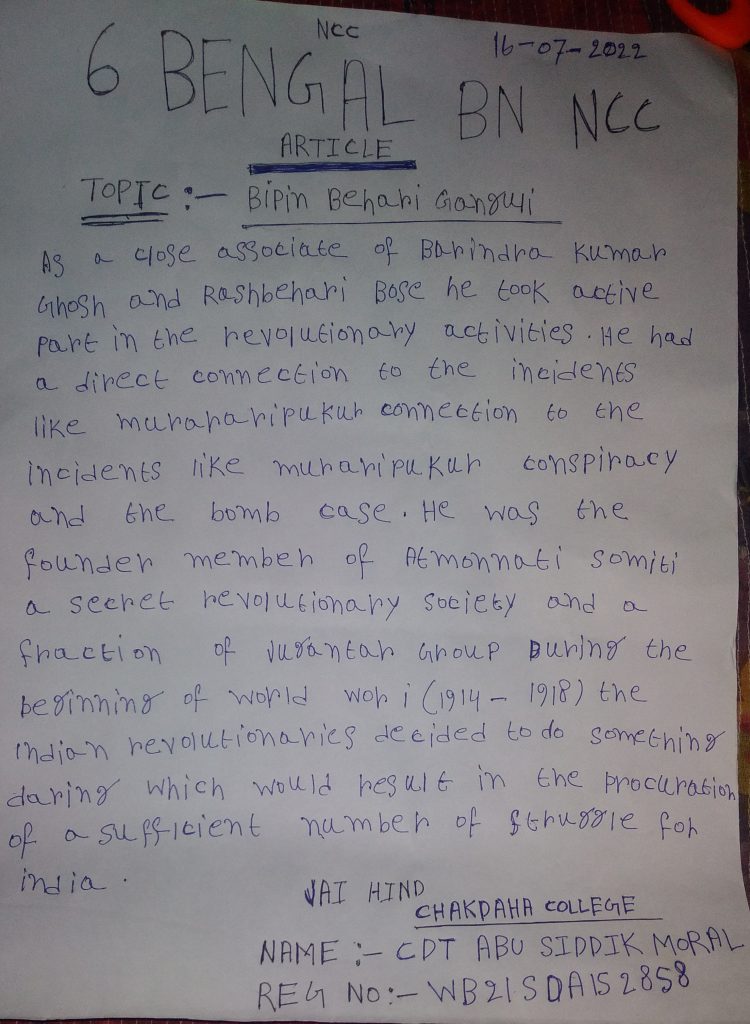 NCC
16-07-2022
6 BENGAL BN NCC
ARTICLE
TOPIC :- Bipin Behari Ganguli
As a close associate of Barindra Kumar
Ghosh and Rashbehari Bose he took active
part in the revolutionary activities. He had
a direct connection to the incidents
like murararipukur connection to the
incidents like muraripukur conspiracy
and the bomb case. He was the
founder member of Atmonnati somiti
a secret revolutionary society and a
fraction of Jugantar Group During the
beginning of world wor i (1914 - 1918) the
indian revolutionaries decided to do something
daring which would result in the procuration
of a sufficient number of struggle for
india.
JAI HIND
CHAKDAHA COLLEGE
NAME :- CDT ABU SIDDIK MORAL
REG NO:- WB21SDA152858